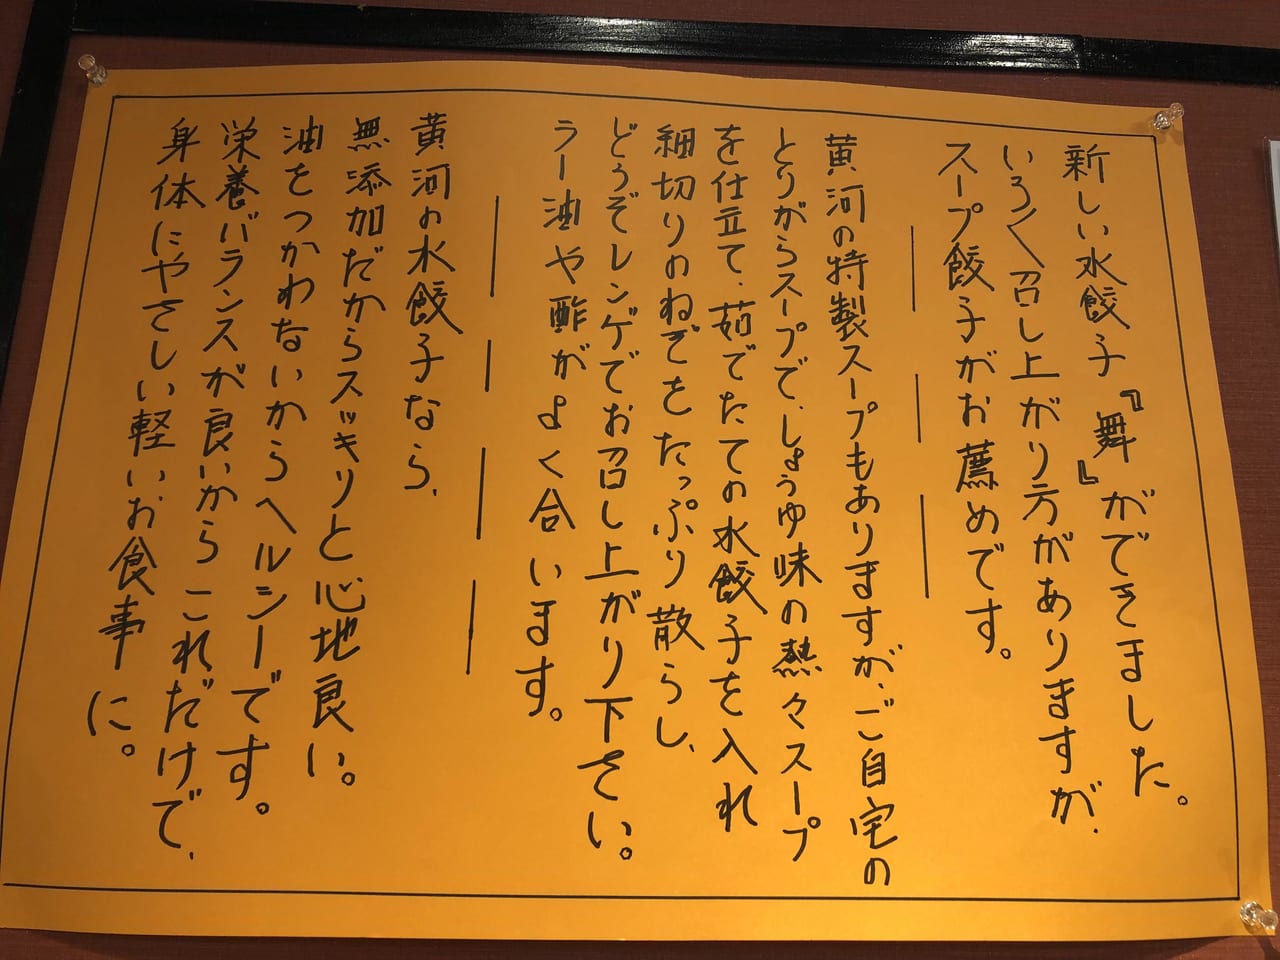 新しい水餃子『舞』ができました。
いろ〱召し上がり方がありますが、
スープ餃子がお薦めです。
黄河の特製スープもありますが、ご自宅の
とりがらスープで、しょうゆ味の熱々スープ
を仕立て、茹でたての水餃子を入れ
細切りのねぎをたっぷり散らし、
どうぞレンゲでお召し上がり下さい。
ラー油や酢がよく合います。
黄河の水餃子なら、
無添加だからスッキリと心地良い。
油をつかわないからヘルシーです。
栄養バランスが良いからこれだけで、
身体にやさしい軽いお食事に。